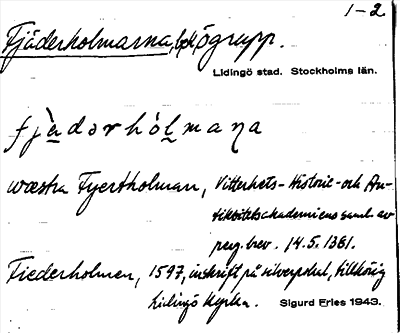 1-2
Fjäderholmarna, ögrupp.
Lidingö stad. Stockholms län.
fjὰdərhólmaṇa
wæstra Fyertholman, Vitterhets- Historie- och An-
tikvitetsakademiens saml. av
perg.brev. 14.5.1381.
Fiederholmen, 1597, inskrift på silverpokal, tillhörig
Lidingö kyrka. Sigurd Fries 1943.